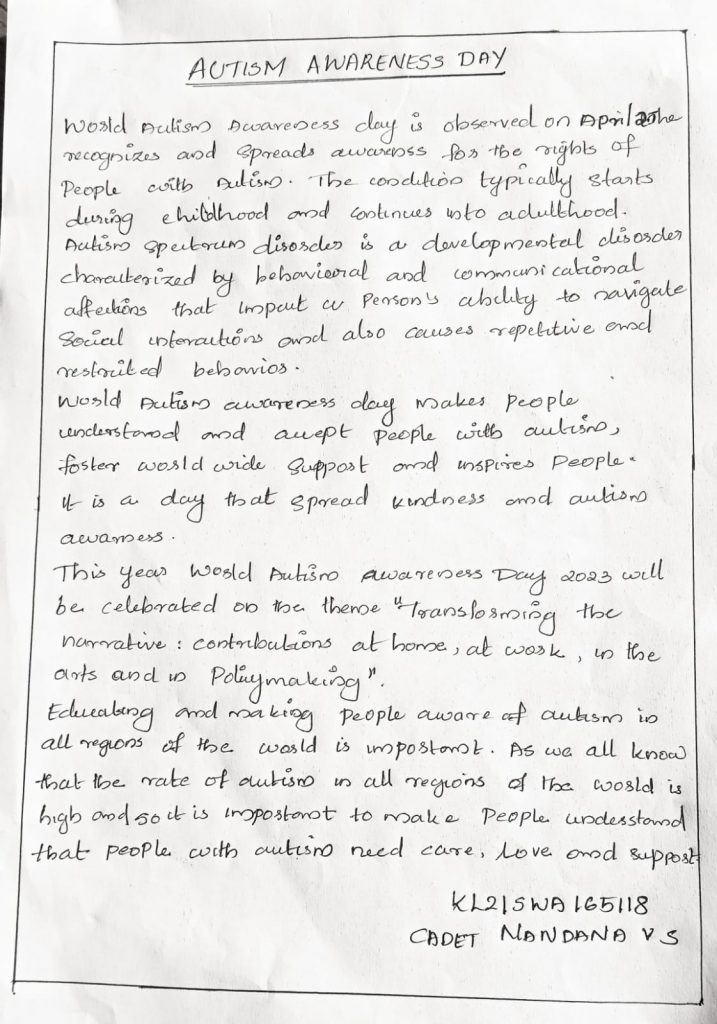 AUTISM AWARENESS DAY
World Autism Awareness day is observed on April
recognizes and spreads awarenss for the rights of
People with Autism. The condition typically starts
during childhood and continues into adulthood.
Autism spectrum disorder is a developmental disorder
characterized by behavioural and communicational
affections that impact a Person's ability to navigate
social interactions and also causes repetitive and
restricted behavior.
World Autism awareness day makes People
understand and accept people with autism,
foster world wide support and inspires People.
it is a day that spread kindness and autism
awarness.
This year World Autism awareness Day 2023 will
be celebrated on the theme "Transforming the
narrative: contributions at home, at work, in the
arts and in Policymaking".
Educating and making people aware of autism in
all regions of the world is important. As we all know
that the rate of autism in all regions of the world is
high and so it is important to make People understand
that people with autism need care, love and support
KL21SWA165118
CADET NANDANA V S